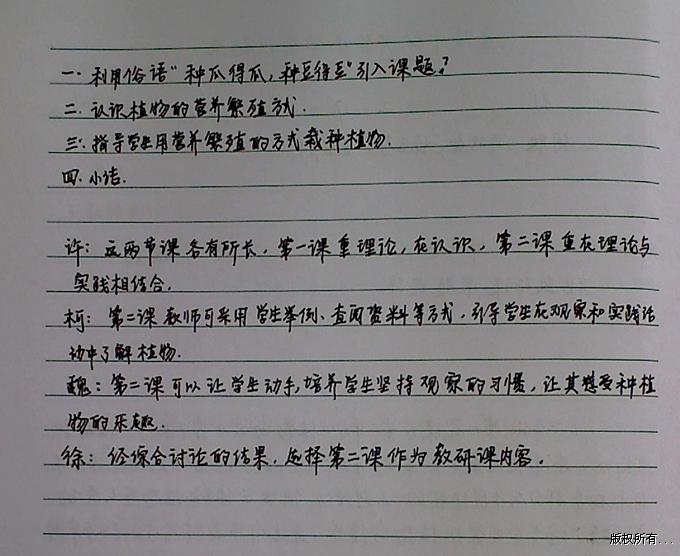 一. 利用俗语"种瓜得瓜,种豆得豆"引入课题?
二. 认识植物的营养繁殖方式.
三. 指导学生用营养繁殖的方式栽种植物.
四. 小结.
许: 这两节课各有所长, 第一课重理论, 在认识, 第二课重在理论与
实践相结合.
柯: 第二课教师可采用学生举例、查阅资料等方式, 引导学生在观察和实践活
动中了解植物.
魏: 第二课可以让学生动手, 培养学生坚持观察的习惯, 让其感受种植
物的乐趣.
徐: 经综合讨论的结果, 选择第二课作为教研课内容.
版权所有...